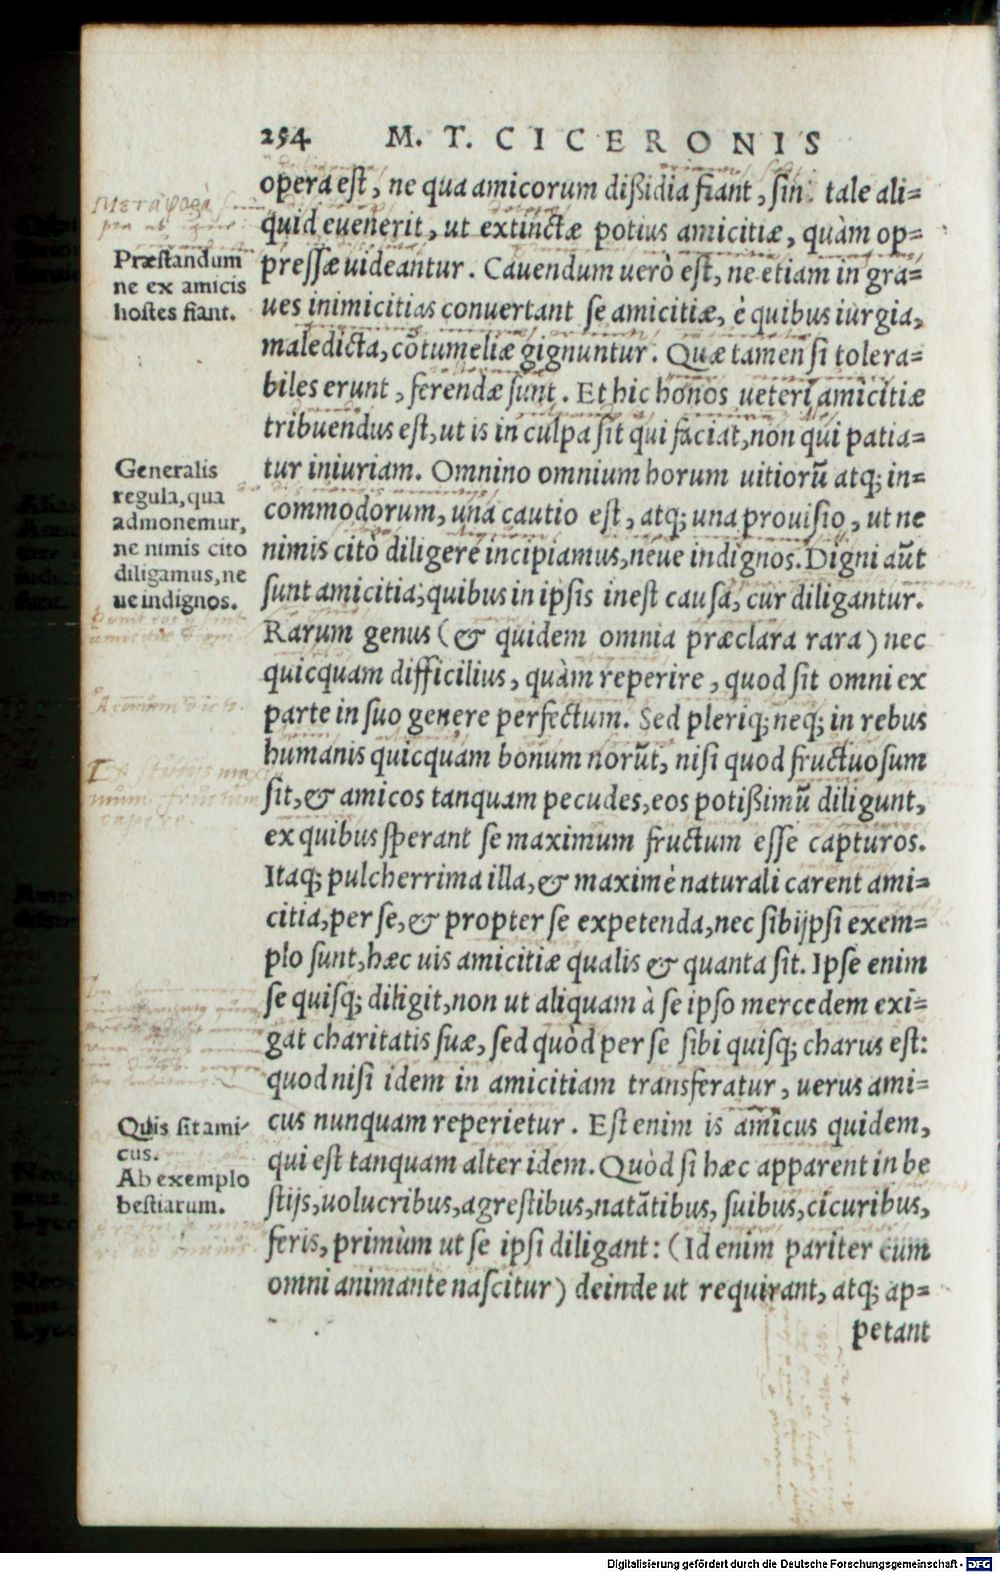 254 M. T. CICERONIS
opera est, ne qua amicorum dißidia fiant, sin tale ali=
quid euenerit, ut extinctæ potius amicitiæ, quàm op=
pressæ uideantur. Cauendum uerò est, ne etiam in gra=
ues inimicitias conuertant se amicitiæ, è quibus iurgia,
maledicta, cõtumeliæ gignuntur. Quæ tamen si tolera=
biles erunt, ferendæ sunt. Et hic honos ueteri amicitiæ
tribuendus est, ut is in culpa sit qui faciat, non qui patia=
tur iniuriam. Omnino omnium horum uitiorũ atq; in=
commodorum, una cautio est, atq; una prouisio, ut ne
nimis citò diligere incipiamus, neue indignos. Digni aũt
sunt amicitia; quibus in ipsis inest causa, cur diligantur.
Rarum genus (& quidem omnia præclara rara) nec
quicquam difficilius, quàm reperire, quod sit omni ex
parte in suo genere perfectum. Sed pleriq; neq; in rebus
humanis quicquam bonum norũt, nisi quod fructuosum
sit, & amicos tanquam pecudes, eos potißimũ diligunt,
ex quibus sperant se maximum fructum esse capturos.
Itaq; pulcherrima illa, & maximè naturali carent ami=
citia, per se, & propter se expetenda, nec sibijpsi exem=
plo sunt, hæc uis amicitiæ qualis & quanta sit. Ipse enim
se quisq; diligit, non ut aliquam à se ipso mercedem exi=
gat charitatis suæ, sed quòd per se sibi quisq; charus est:
quod nisi idem in amicitiam transferatur, uerus ami=
cus nunquam reperietur. Est enim is amicus quidem,
qui est tanquam alter idem. Quòd si hæc apparent in be
stijs, uolucribus, agrestibus, natãtibus, suibus, cicuribus,
feris, primùm ut se ipsi diligant: (Id enim pariter cum
omni animante nascitur) deinde ut requirant, atq; ap=
petant
Præstandum
ne ex amicis
hostes fiant.
Generalis
regula, qua
admonemur,
ne nimis cito
diligamus, ne
ue indignos.
Quis sit ami-
cus.
Ab exemplo
bestiarum.
Digitalisierung gefördert durch die Deutsche Forschungsgemeinschaft - DFG